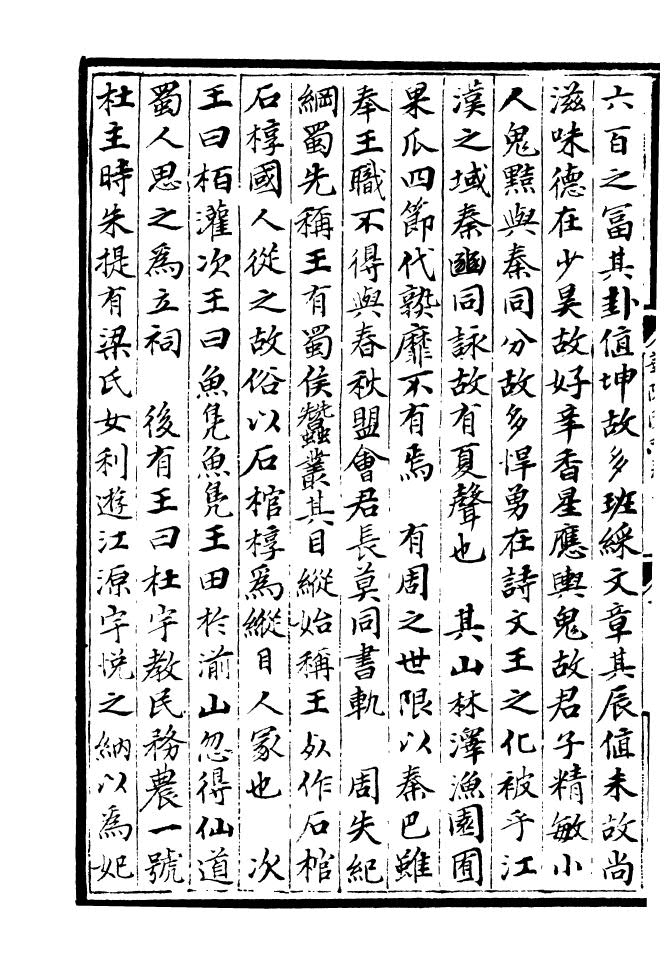 六百之冨其卦值坤故多班綵文章其辰值未故尚
滋味德在少昊故好辛香星應輿鬼故君子精敏小
人鬼黠與秦同分故多悍勇在詩文王之化被乎江
漢之域秦豳同詠故有夏聲也　其山林澤漁園囿
果瓜四節代熟靡不有焉　有周之世限以秦巴雖
奉王職不得與春秋盟會君長莫同書軌　周失紀
綱蜀先稱王有蜀侯蠶叢其目縱始稱王死作石棺
石椁國人從之故俗以石棺椁為縱目人冢也　次
王曰栢灌次王曰魚鳧魚鳧王田於湔山忽得仙道
蜀人思之為立祠　後有王曰杜宇教民務農一號
杜主時朱提有梁氏女利遊江源宇悅之納以為妃